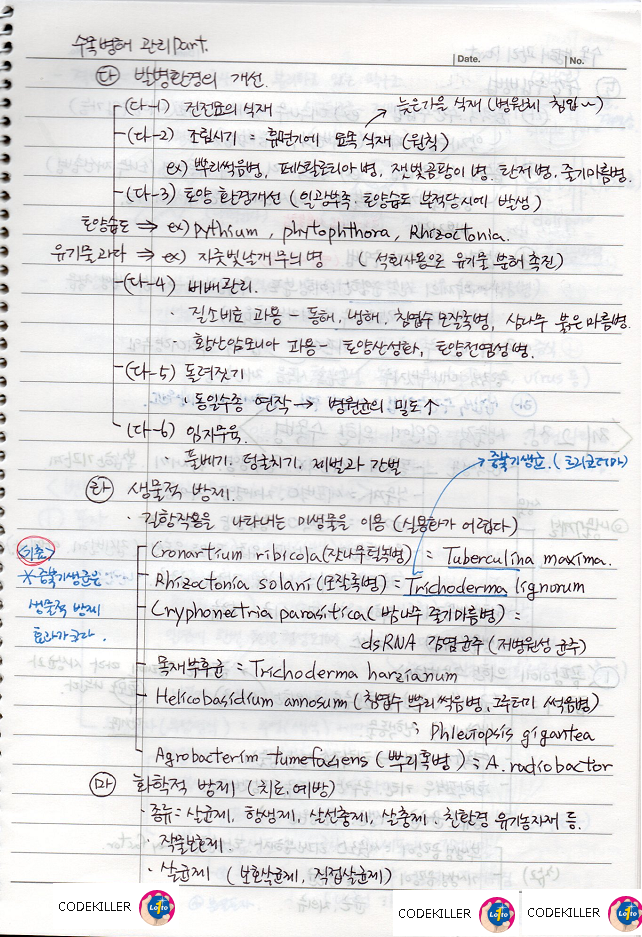 수목병해 관리 Part.
Date. No.
㉰ 발병환경의 개선.
(다-1) 건전묘의 식재
늦은가을 식재 (병원체 침입~)
(다-2) 조림시기 = 휴면기에 묘목 식재 (원칙)
ex) 뿌리썩음병, 페스탈로티아병, 잿빛곰팡이병. 탄저병, 줄기마름병.
(다-3) 토양 환경개선 (일광부족, 토양습도 부적당시에 발생)
토양습도 ⇒ ex) pythium, phytophthora, Rhizoctonia.
유기물과다 ⇒ ex) 자줏빛날개무늬병 (석회사용으로 유기물 부해 촉진)
(다-4) 비배관리.
· 질소비료 과용 - 동해, 냉해, 침엽수 모잘록병, 삼나무 붉은마름병.
· 황산암모니아 과용 - 토양산성화, 토양전염성병.
(다-5) 돌려짓기
· 동일수종 연작 → 병원균의 밀도↑
(다-6) 임지무육.
풀베기, 덩굴치기, 제벌과 간벌
→ 중복기생균. (트리코더마)
㉱ 생물적 방제.
· 길항작용을 나타내는 미생물을 이용 (실용화가 어렵다)
<기출>
Cronartium ribicola (잣나무털녹병) = Tuberculina maxima.
※ 중복기생균은
Rhizactonia solani (모잘록병) = Trichoderma lignorum
생물적 방제
Cryphonectria parasitica (밤나무 줄기마름병) =
효과가 크다.
dsRNA 감염균주 (저병원성 균주)
목재부후균 = Trichoderma harzianum
Helicobasidium annosum (침엽수 뿌리썩음병, 그루터기 썩음병)
; Phleviopsis gigantea
Agrobacterim tumefaciens (뿌리혹병) = A. radiobactor
㉲ 화학적 방제 (치료, 예방)
· 종류 = 살균제, 항생제, 살선충제, 살충제. 친환경 유기농자재 등.
· 작물보호제.
· 살균제 (보호살균제, 직접살균제)
CODEKILLER Lotto CODEKILLER Lotto CODEKILLER Lotto